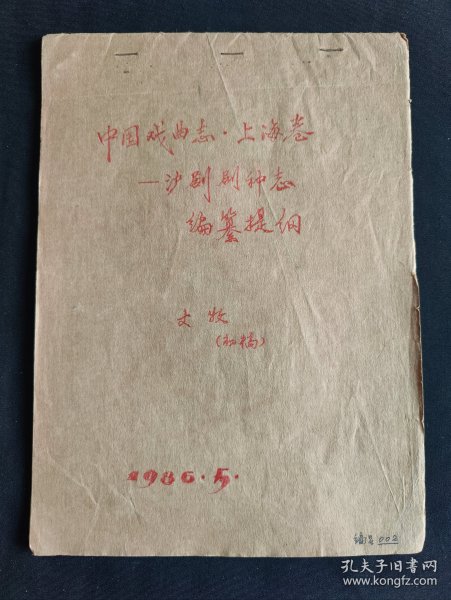 中国戏曲志·上海卷
—沪剧剧种志
编纂提纲
文牧
(初稿)
1986.5.
编号002
孔夫子旧书网
www.kongfz.com